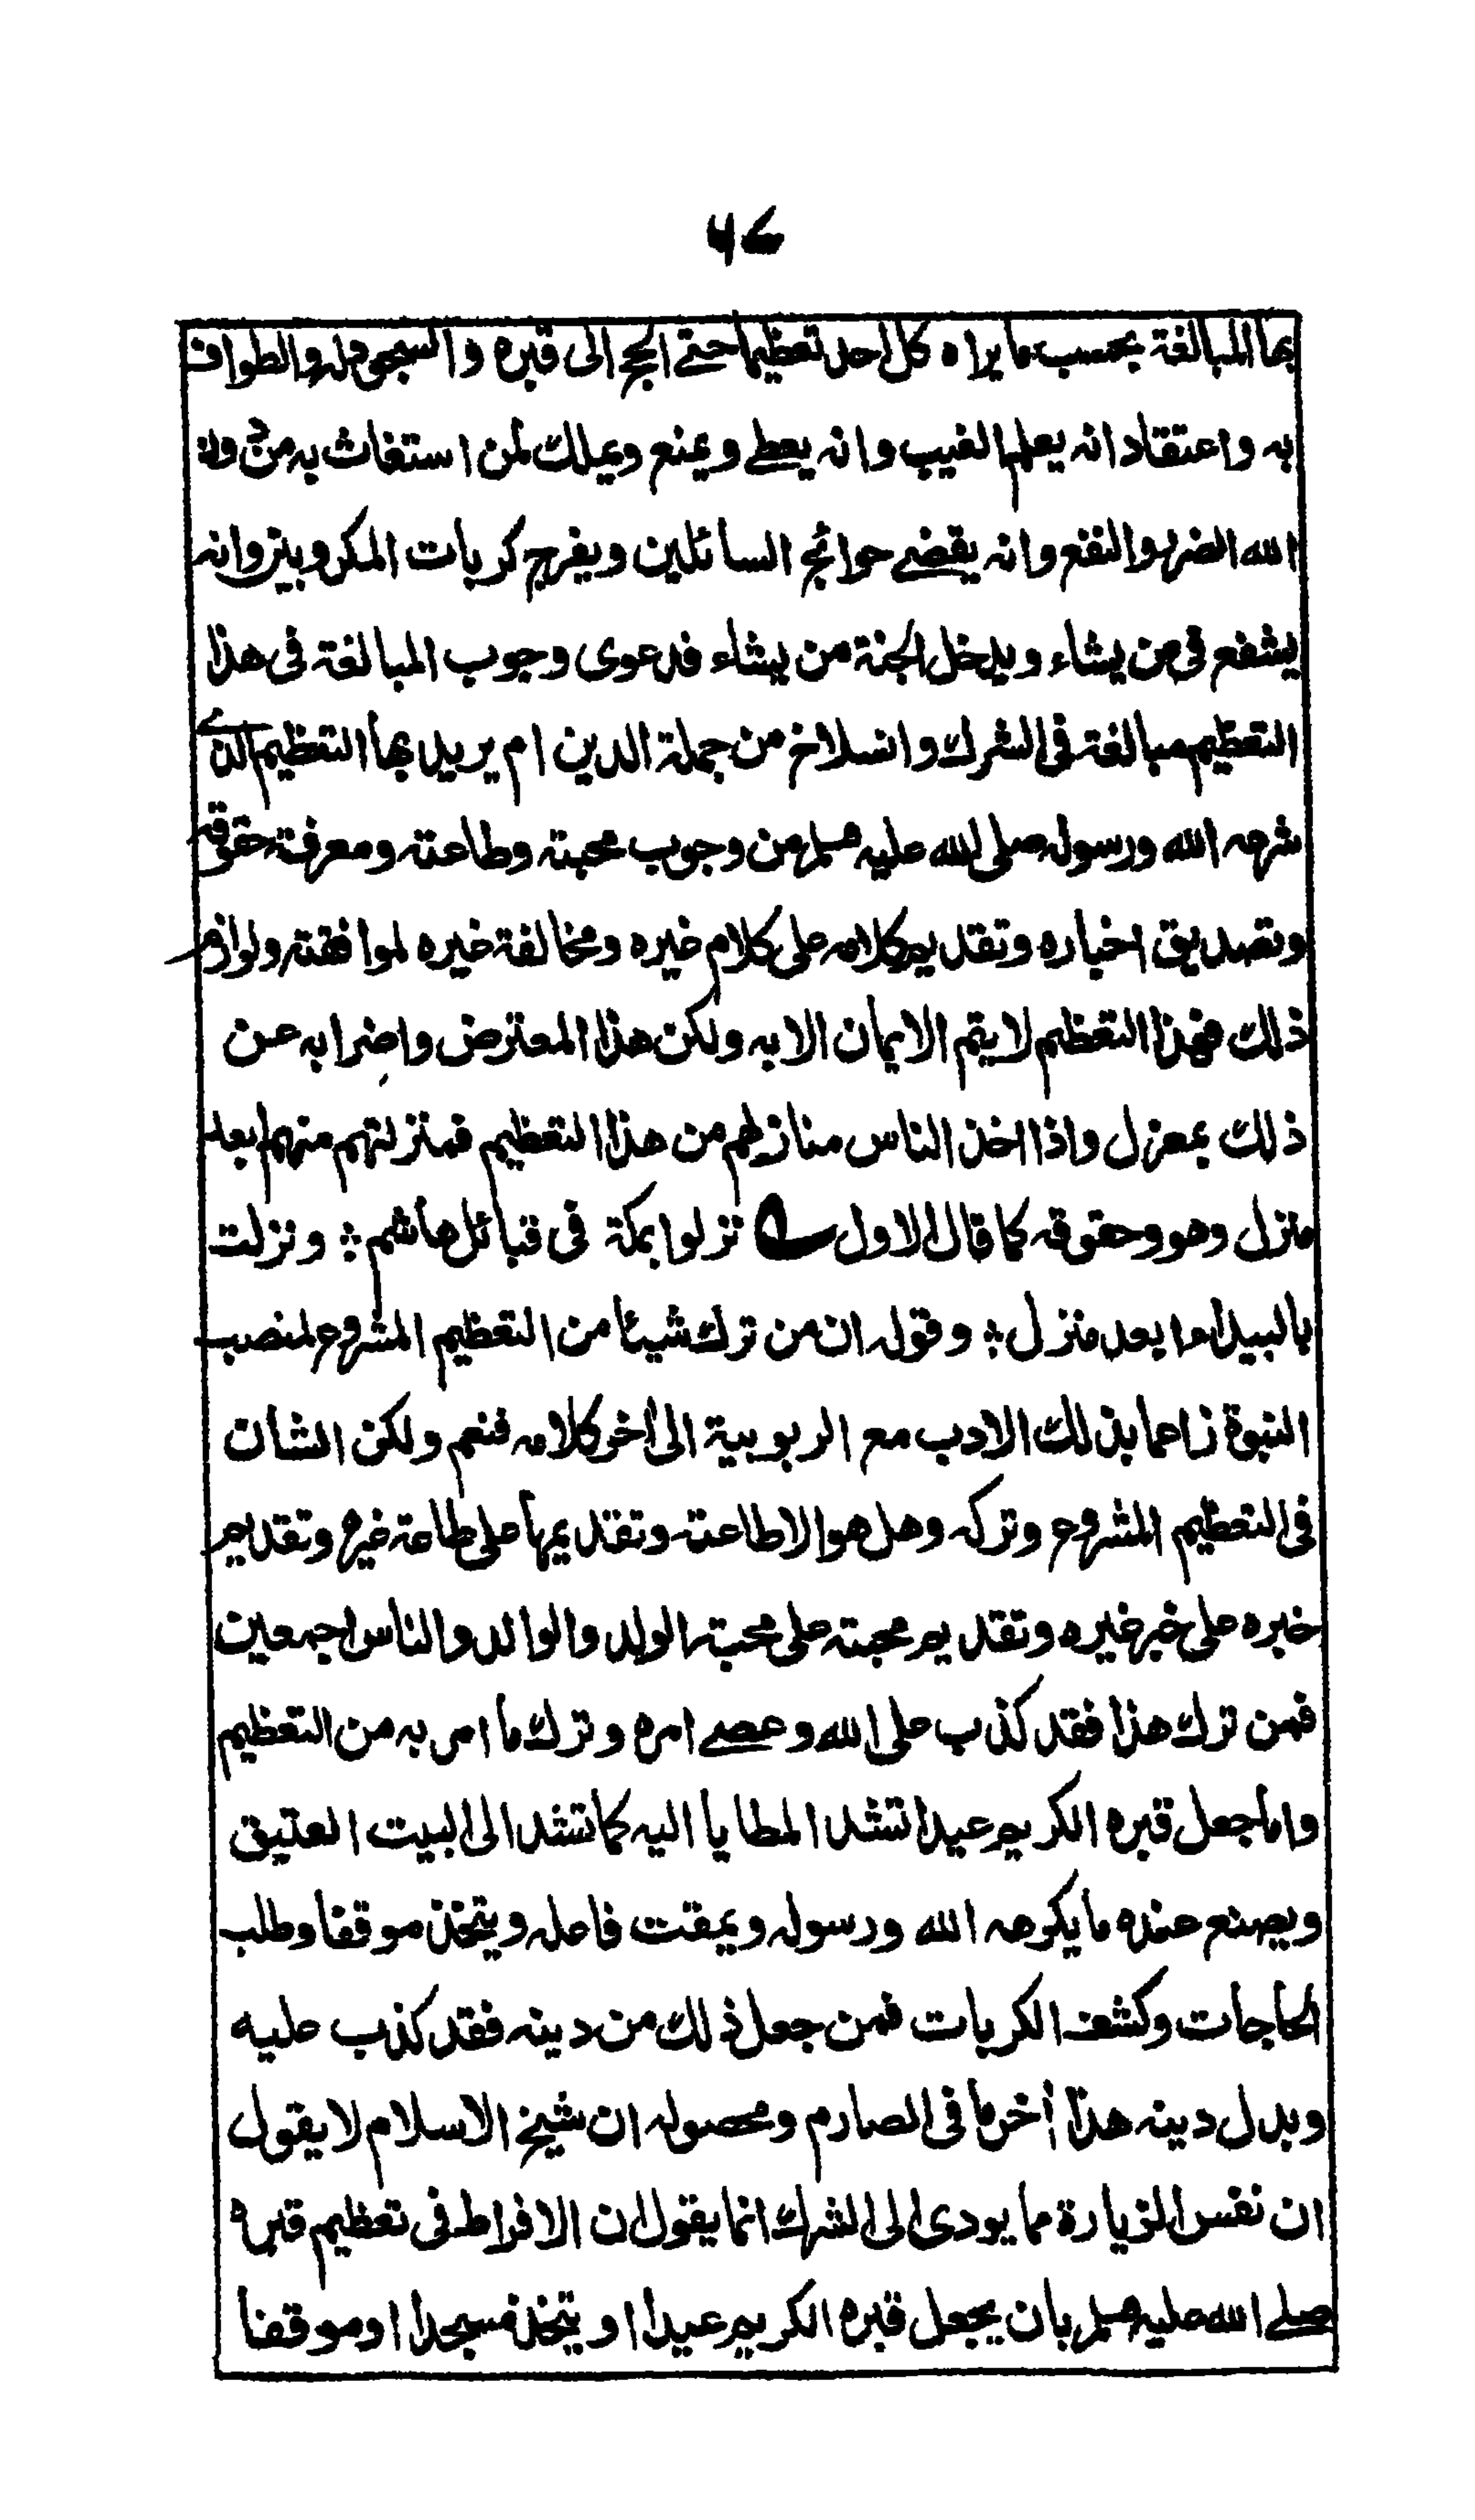 ۴۶
بها المبالغة بحسب ما يراه كل احد تعظيما حتى الحج الى قبره و السجود له والطواف
به واعتقاد انه يعلم الغيب وانه يعطي ويمنع ويملك لمن استغاث به من دون
الله الضر والنفع وانه يقضي حوائج السائلين ويفرج كربات المكروبين وانه
يشفع في من يشاء ويدخل الجنة من يشاء فدعوى وجوب المبالغة في هذا
التعظيم مبالغة في الشرك وانسلاخ من جملة الدين ام يريد بها التعظيم الذي
شرعه الله ورسوله صلى الله عليه وسلم من وجوب محبته وطاعته ومعرفة حقوقه
وتصديق اخباره وتقديم كلامه على كلام غيره ومخالفة غيره لموافقته ولوازم
ذلك فهذا التعظيم لا يتم الايمان الا به ولكن هذا المعترض واضرابه عن
ذلك بمعزل واذا اخذ الناس منازلهم من هذا التعظيم فمنزلتهم منهم ابعد
منزل وهو وحقوقه كما قال الاول نزلوا بمكة في قبائل هاشم ؛ ونزلت
بالبيداء ابعد منزل ؛ وقوله ان من ترك شيئا من التعظيم المشروع لمنصب
النبوة زاعما بذلك الادب مع الربوبية الى اخر كلامه فنعم ولكن الشان
في التعظيم المشروع وتركه وهل هو الا طاعته وتقديمها على طاعة غيره وتقديم
خبره على خبر غيره وتقديم محبته على محبة الولد والوالد والناس اجمعين
فمن ترك هذا فقد كذب على الله وعصى امره وترك ما امر به من التعظيم
واما جعل قبره الكريم عيدا تشد المطايا اليه كما تشد الى البيت العتيق
ويصنع عنده ما يكرهه الله ورسوله ويمقت فاعله ويتخذ موقفا وطلب
الحاجات وكشف الكربات فمن جعل ذلك من دينه فقد كذب عليه
وبدل دينه هذا أخر ما في الصارم ومحصوله ان شيخ الاسلام لا يقول
ان نفس الزيارة مما يودى الى الشرك انما يقول ان الافراط في تعظيم قبره
صلى الله عليه وسلم بان يجعل قبره الكريم عيدا او يتخذ مسجدا او موقفا